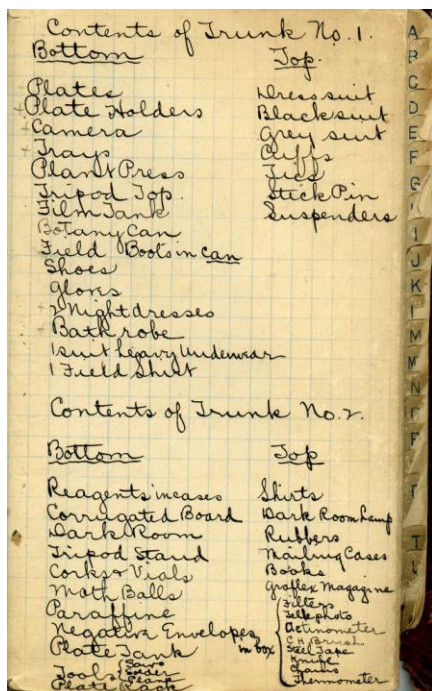 Contents of Trunk No. 1.
Bottom
Plates
Plate Holders
Camera
Trays
Plant Press
Tripod Top.
Film Tank
Botany Can
Field Boots in can
Shoes
Gloves
2 Nightdresses
Bath robe
1 suit heavy Underwear
1 Field Shirt
Top.
Dress suit
Black suit
Grey suit
Cuffs
Ties
Stick Pin
Suspenders
Contents of Trunk No. 2.
Bottom
Reagents in cases
Corrugated Board
Dark Room
Tripod Stand
Corks & Vials
Moth Balls
Paraffine
Negative Envelopes
Plate Tank
Tools
Saws
Solder
Plane
Plate Rack
Top
Shirts
Dark Room Lamp
Rubbers
Mailing Cases
Books
Graflex Magazine
in box
Filters
Telephoto
Actinometer
C H Brush
Steel Tape
Knife
Chains
Thermometer
A
B
C
D
E
F
G
I
J
K